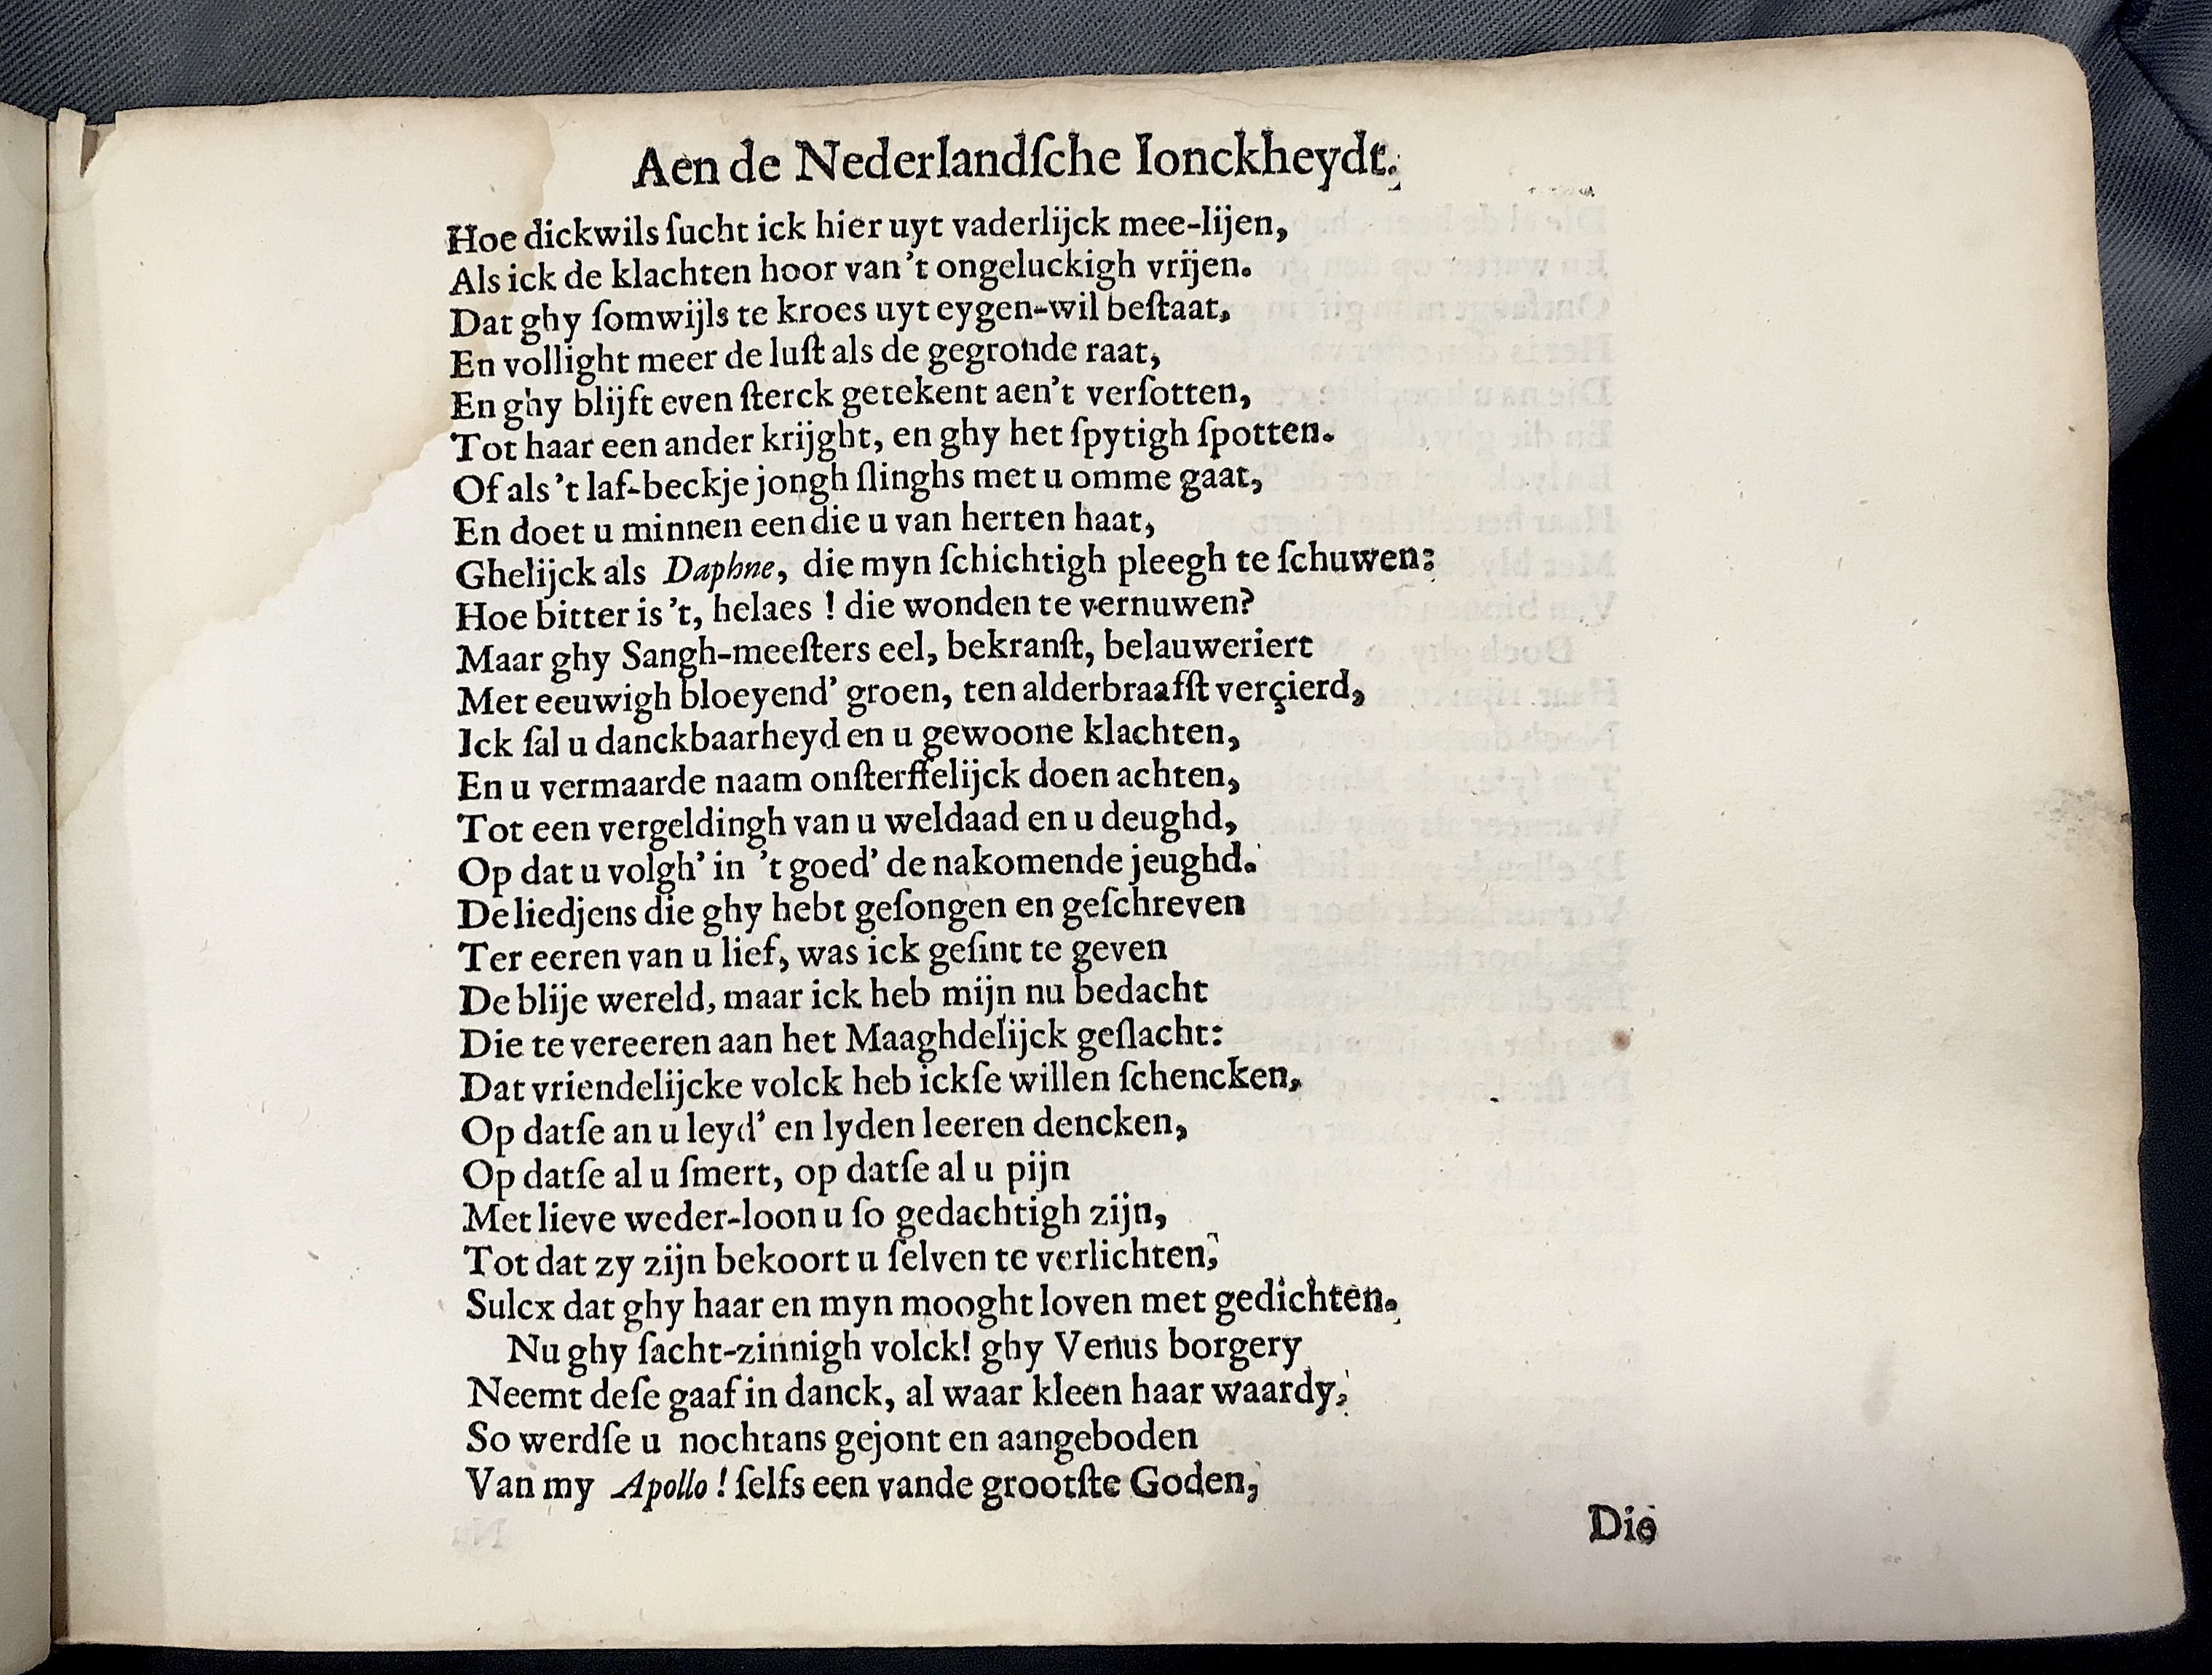 Aen de Nederlandſche Ionckheydt.
Hoe dickwils ſucht ick hier uyt vaderlijck mee-lijen,
Als ick de klachten hoor van 't ongeluckigh vrijen.
Dat ghy ſomwijls te kroes uyt eygen-wil beſtaat,
En vollight meer de luſt als de gegronde raat,
En ghy blijft even ſterck getekent aen't verſotten,
Tot haar een ander krijght, en ghy het ſpytigh ſpotten.
Of als 't laf-beckje jongh ſlinghs met u omme gaat,
En doet u minnen een die u van herten haat,
Ghelijck als Daphne, die myn ſchichtigh pleegh te ſchuwen:
Hoe bitter is 't, helaes ! die wonden te vernuwen?
Maar ghy Sangh-meeſters eel, bekranſt, belauweriert
Met eeuwigh bloeyend' groen, ten alderbraafſt verçierd,
Ick ſal u danckbaarheyd en u gewoone klachten,
En u vermaarde naam onſterffelijck doen achten,
Tot een vergeldingh van u weldaad en u deughd,
Op dat u volgh' in 't goed' de nakomende jeughd.
De liedjens die ghy hebt geſongen en geſchreven
Ter eeren van u lief, was ick geſint te geven
De blije wereld, maar ick heb mijn nu bedacht
Die te vereeren aan het Maaghdelijck geſlacht:
Dat vriendelijcke volck heb ickſe willen ſchencken,
Op datſe an u leyd' en lyden leeren dencken,
Op datſe al u ſmert, op datſe al u pijn
Met lieve weder-loon u ſo gedachtigh zijn,
Tot dat zy zijn bekoort u ſelven te verlichten,
Sulcx dat ghy haar en myn mooght loven met gedichten.
Nu ghy ſacht-zinnigh volck! ghy Venus borgery
Neemt deſe gaaf in danck, al waar kleen haar waardy,
So werdſe u nochtans gejont en aangeboden
Van my Apollo ! ſelfs een vande grootſte Goden,
Die